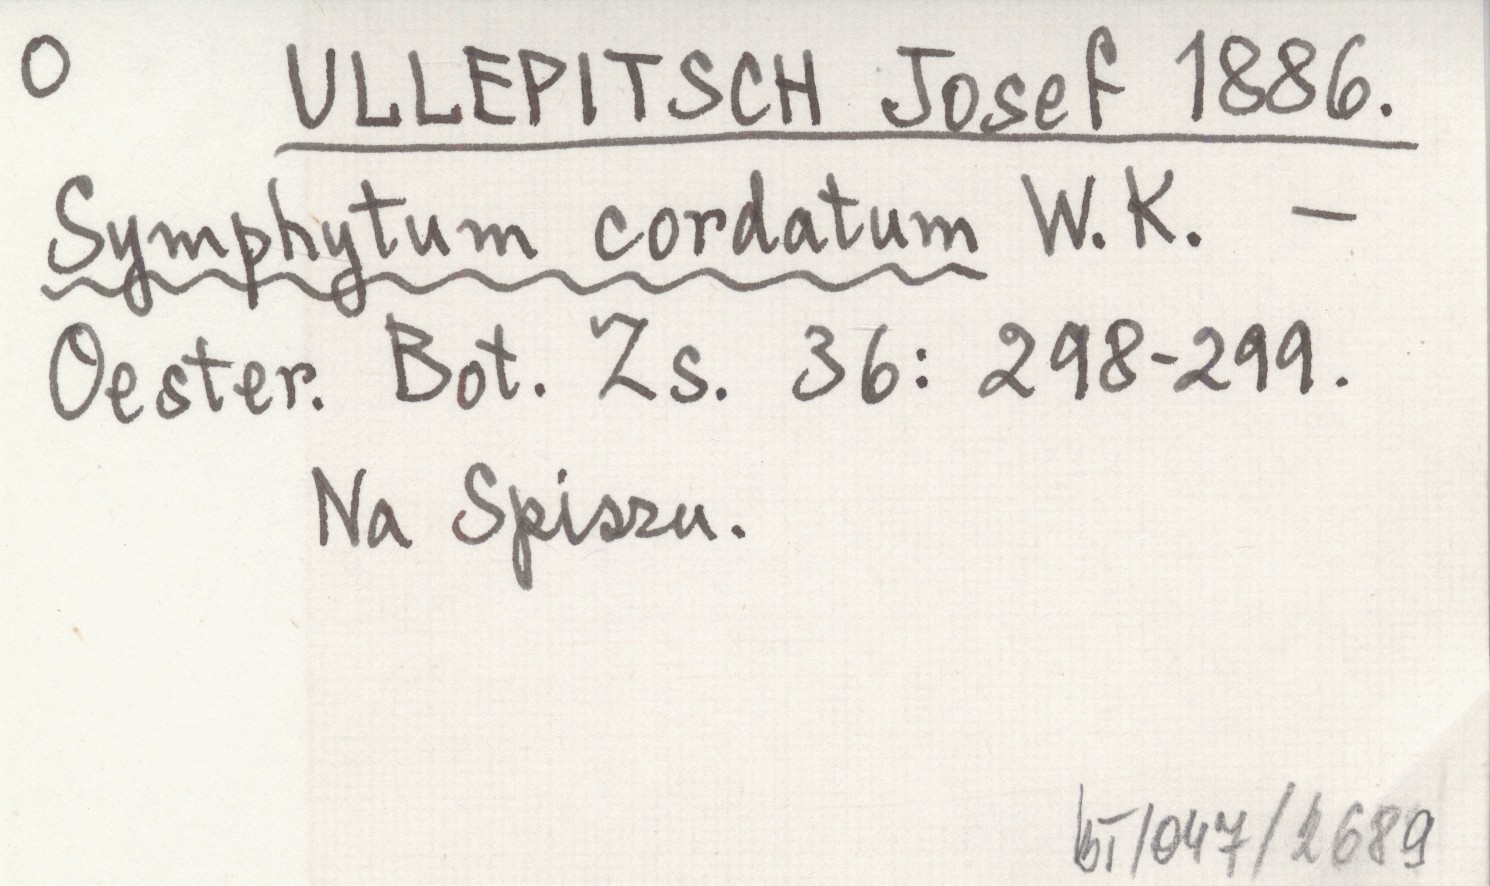 O ULLEPITSCH Josef 1886.
Symphytum cordatum W. K. —
Oester. Bot. Zs. 36: 298-299.
Na Spiszu.
/047/2689